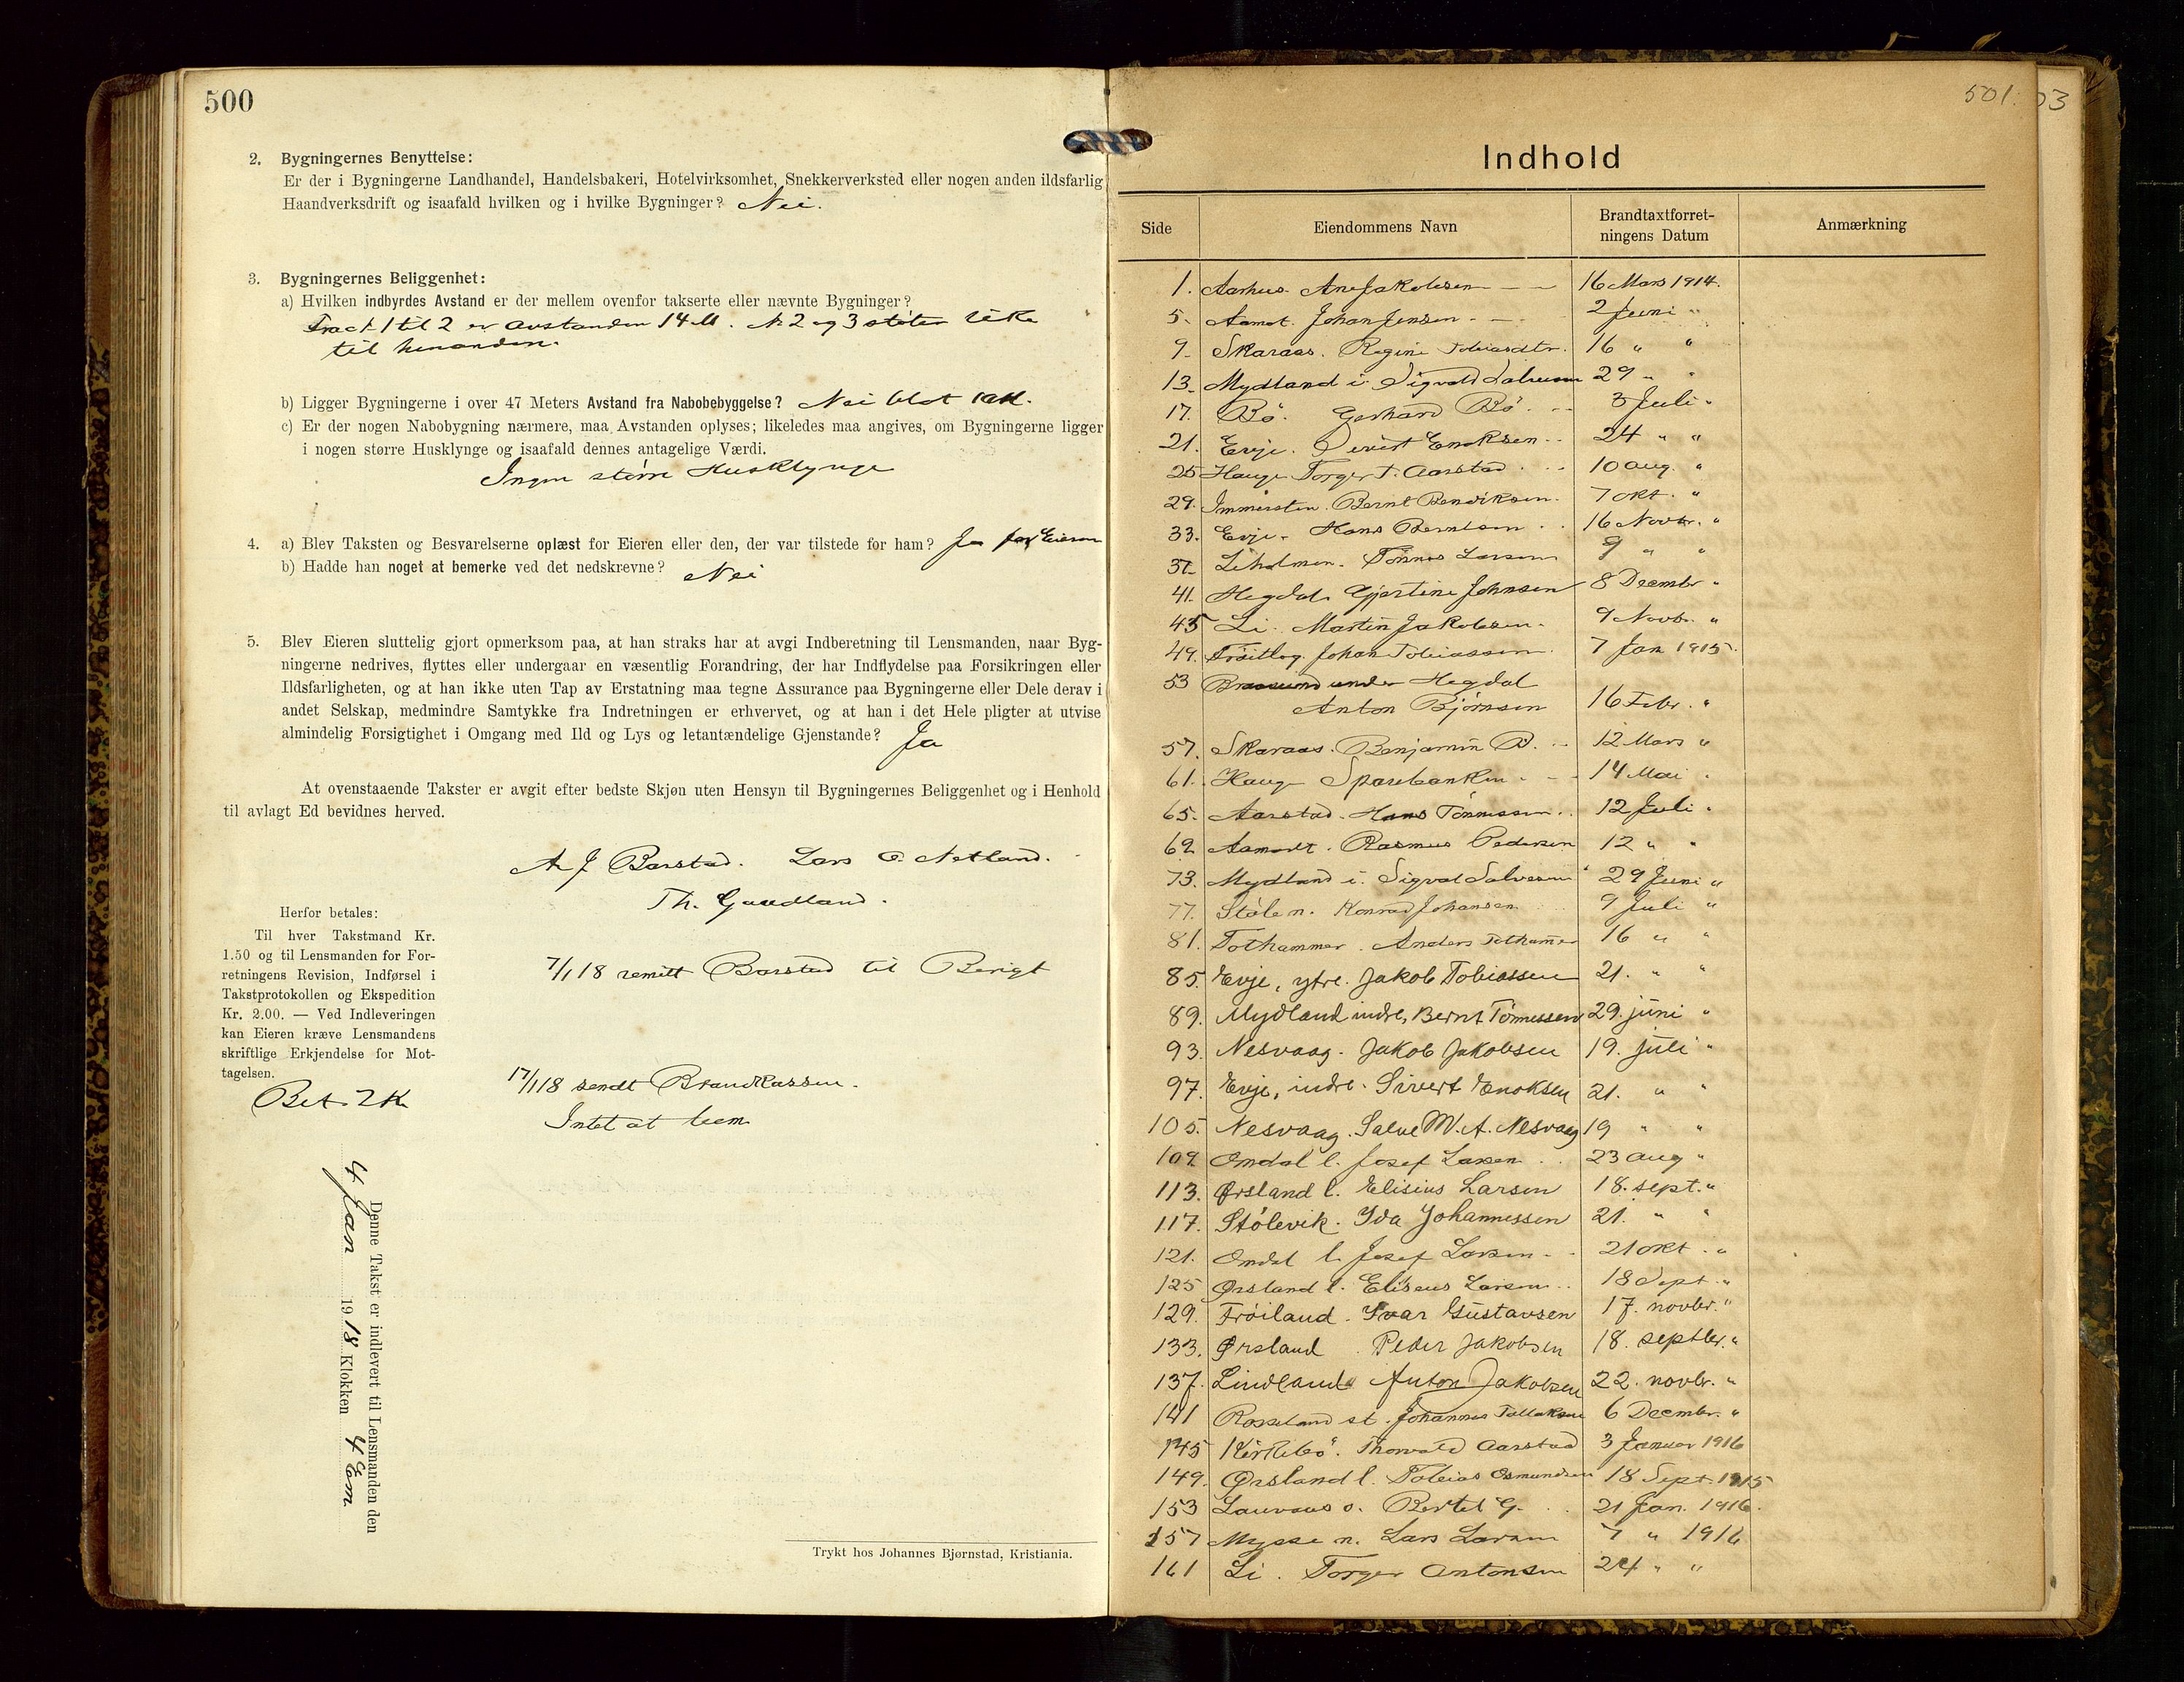 500
2. Bygningernes Benyttelse:
Er der i Bygningerne Landhandel, Handelsbakeri, Hotelvirksomhet, Snekkerverksted eller nogen anden ildsfarlig
Haandverksdrift og isaafald hvilken og i hvilke Bygninger? Nei.
3. Bygningernes Beliggenhet:
a) Hvilken indbyrdes Avstand er der mellem ovenfor takserte eller nævnte Bygninger?
1 til 2 er avstanden 14 M. No 2 og 3 støter like
til hinanden.
b) Ligger Bygningerne i over 47 Meters Avstand fra Nabobebyggelse? Nei blot
c) Er der nogen Nabobygning nærmere, maa Avstanden oplyses; likeledes maa angives, om Bygningerne ligger
i nogen større Husklynge og isaafald dennes antagelige Værdi.
Ingen større Husklynge
4. a) Blev Taksten og Besvarelserne oplæst for Eieren eller den, der var tilstede for ham? Ja for Eieren
b) Hadde han noget at bemerke ved det nedskrevne? Nei
5. Blev Eieren sluttelig gjort opmerksom paa, at han straks har at avgi Indberetning til Lensmanden, naar Byg-
ningerne nedrives, flyttes eller undergaar en væsentlig Forandring, der har Indflydelse paa Forsikringen eller
Ildsfarligheten, og at han ikke uten Tap av Erstatning maa tegne Assurance paa Bygningerne eller Dele derav i
andet Selskap, medmindre Samtykke fra Indretningen er erhvervet, og at han i det Hele pligter at utvise
almindelig Forsigtighet i Omgang med Ild og Lys og letantændelige Gjenstande? Ja
At ovenstaaende Takster er avgit efter bedste Skjøn uten Hensyn til Bygningernes Beliggenhet og i Henhold
til avlagt Ed bevidnes herved.
A J Barstad. Lars O. Netland.
Th. Gaudland.
Herfor betales:
Til hver Takstmand Kr.
1.50 og til Lensmanden for For-
retningens Revision, Indførsel i
Takstprotokollen og Ekspedition
Kr. 2.00. — Ved Indleveringen
kan Eieren kræve Lensmandens
skriftlige Erkjendelse for Mot-
tagelsen.
Bet. 2 Kr
7/1 18 remitt Barstad til
17/1 18 sendt Brandkassen.
Intet at bem
Denne Takst er indlevert til Lensmanden den
4 Jan 1918 Klokken 4 Em
Trykt hos Johannes Bjørnstad, Kristiania.
501.
03
Indhold
Side Eiendommens Navn Brandtaxtforret- Anmærkning
ningens Datum
1. Aarhus. Ane Jakobsen — — 16 Mars 1914.
5. Aamot. Johan Jensen. — 2 Juni "
9. Skaraas. Regine Tobiasdtr. 16 " "
13. Mydland i. Sigvald Salvesen 29 " "
17. Bö. Gerhard Bö. 3 Juli "
21. Evje. Sivert Enoksen 24 " "
25 Hauge Torger T. Aarstad 10 aug. "
29. Bernt Bendiksen. 7 okt. "
33. Evje. Hans Berntsen 16 Novbr. "
37. Liholmen. Tönnes Larsen 9 " "
41. Hegdal. Gjertine Johnsen 8 Decembr "
45 Li. Martin Jakobsen. 9 Novbr. "
49. Johan Tobiassen. 7 Jan 1915.
53 under Hegdal
Anton Björnsen 16 Febr. "
57. Skaraas. Benjamin B. 12 Mars "
61. Hauge Sparebanken 14 Mai "
65. Aarstad. Hans Tönnessen 12 Juli "
69. Aamodt. Rasmus Pedersen 12 " "
73. Mydland i. Sigvald Salvesen 29 Juni "
77. Stöle n. Konrad Johansen 9 Juli "
81. Tothammer. Anders Tothammer 16 " "
85. Evje, ytre. Jakob Tobiassen 21. " "
89. Mydland indre, Bernt Tönnessen 29. juni "
93. Nesvaag. Jakob Jakobsen 19. juli "
97. Evje, indre. Sivert Enoksen 21. " "
105. Nesvaag. Salve M. A. Nesvaag 19 " "
109 Omdal l. Josef Larsen 23 aug "
113. Ørsland l. Elisius Larsen 18. sept. "
117. Stölevik. Ida Johannessen 21. " "
121. Omdal l. Josef Larsen 21 okt. "
125 Ørsland l. Eliseus Larsen 18 Sept. "
129. Fröiland. Ivar Gustavsen 17. novbr. "
133. Ørsland Peder Jakobsen 18. septbr. "
137. Lindland Anton Jakobsen 22. novbr. "
141 Rosseland st. Johannes Tollaksen 6 Decembr. "
145 Kirkebö. Thorvald Aarstad 3 Januar 1916
149. Ørsland l. Tobias Osmundsen 18 Sept. 1915
153 Lauvaas o. Bertel G. 21 Jan. 1916.
157 Mysse n. Lars Larsen 7 " 1916
161 Li. Torger Antonsen 24 " "